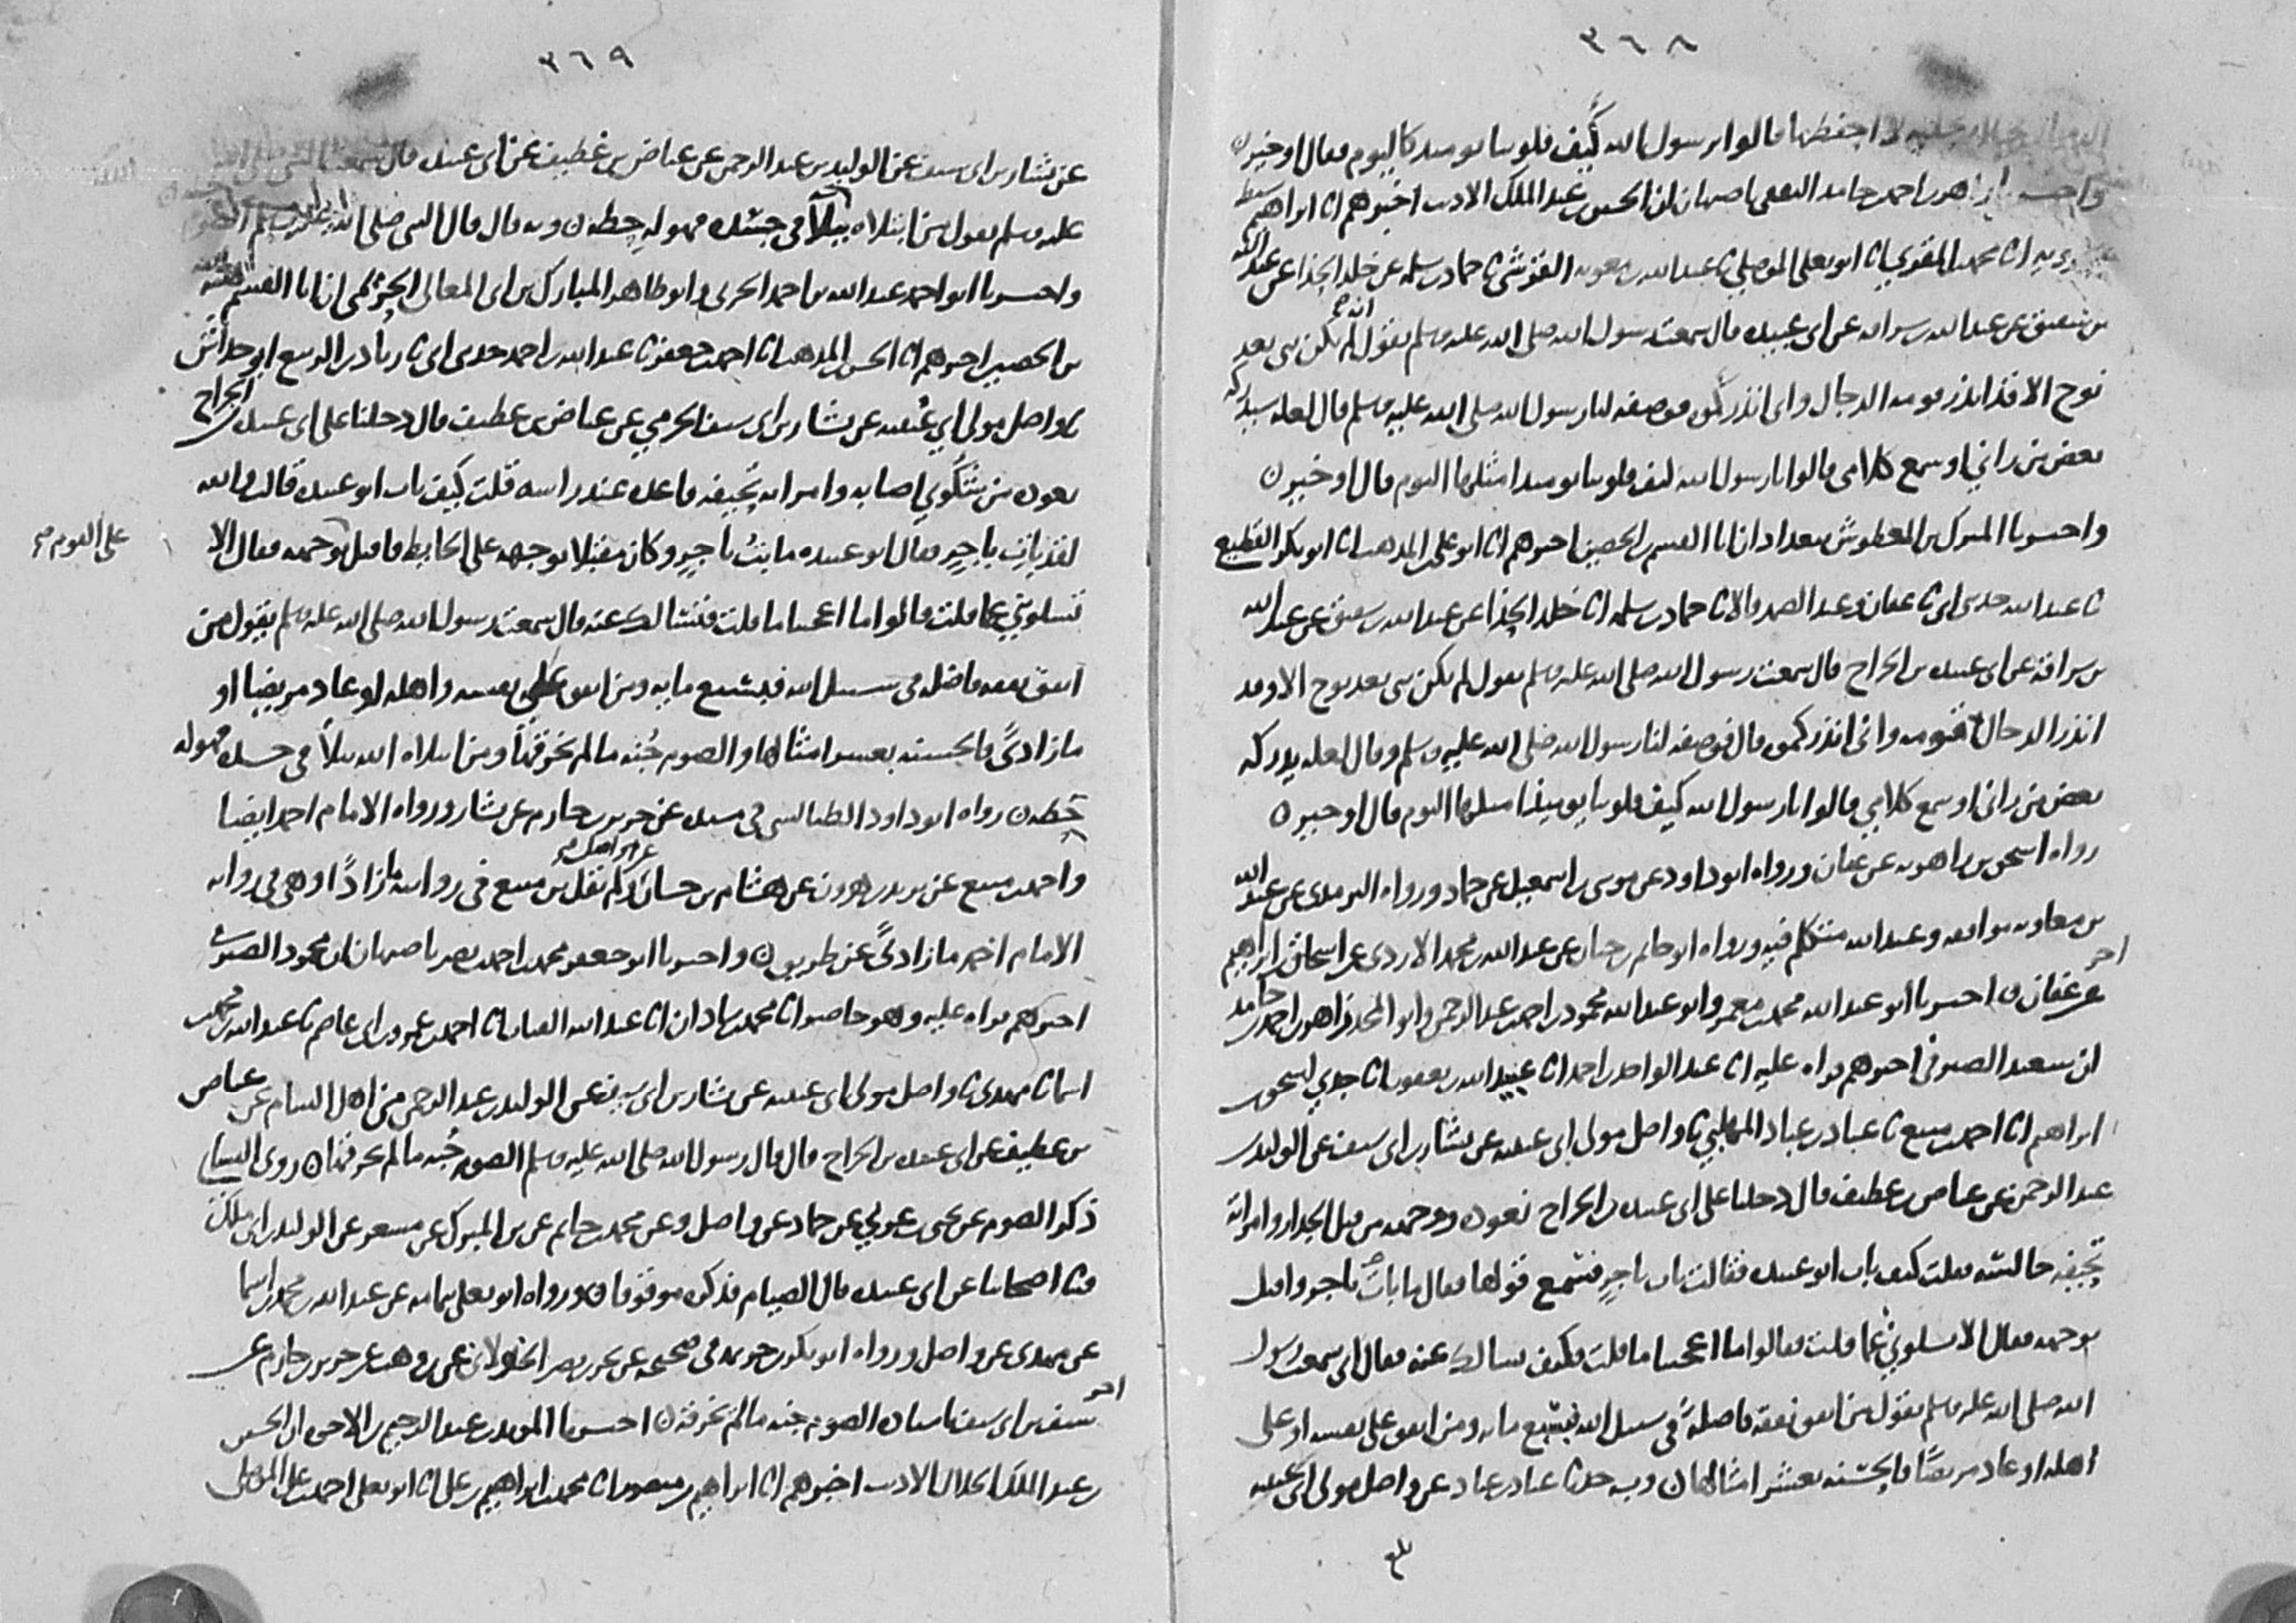 ٣٦٨
لا احفظها قالوا يرسول الله كيف قلوبنا يومئذ كاليوم فقال او خير
زاهر بن احمد بن حامد الثقفي باصبهان ان الحسين بن عبد الملك الاديب اخبرهم انا ابراهيم
انا محمد بن المقري انا ابو يعلى الموصلي ثنا عبد الله بن معوية القرشي ثنا حماد بن سلمة عن خلد الحذا عن عبد الله
بن شقيق عن عبد الله بن سراقة عن ابي عبيدة قال سمعت رسول الله صلى الله عليه وسلم يقول انه لم يكن نبي بعد
نوح الا قد انذر قومه الدجال واني انذركموه فوصفه لنا رسول الله صلى الله عليه وسلم قال لعله سيدركه
بعض من راني او سمع كلامي قالوا يا رسول الله كيف قلوبنا يومئذ امثلها اليوم قال او خير
واخبرنا المبرك بن المعطوش ببغداد ان ابا القسم بن الحصين اخبرهم انا ابو علي بن المذهب انا ابو بكر القطيعي
ثنا عبد الله حدثني ابي ثنا عفان وعبد الصمد قالا ثنا حماد بن سلمة انا خلد الحذا عن عبد الله بن شقيق عن عبد الله
بن سراقة عن ابي عبيدة بن الجراح قال سمعت رسول الله صلى الله عليه وسلم يقول لم يكن نبي بعد نوح الا وقد
انذر الدجال قومه واني انذركموه قال فوصفه لنا رسول الله صلى الله عليه وسلم وقال لعله يدركه
بعض من راني او سمع كلامي قالوا يا رسول الله كيف قلوبنا يومئذ امثلها اليوم قال او خير
رواه اسحق بن راهويه عن عفان ورواه ابو داود عن موسى بن اسمعيل عن حماد ورواه الترمذي عن عبد الله
بن معاوية بوافقه وعبد الله متكلم فيه ورواه ابو حاتم بن حبان عن عبد الله بن محمد الازدي عن اسحاق بن ابراهيم
عن عفان اخبرنا ابو عبد الله محمد بن معمر وابو عبد الله محمود بن احمد بن عبد الرحمن وابو المجد زاهر بن احمد بن حامد
ان سعيد الصيرفي اخبرهم قراه عليه انا عبد الواحد بن احمد انا عبيد الله بن يعقوب انا جدي اسحق بن
ابراهيم انا احمد بن منيع ثنا عباد بن عباد المهلبي ثنا واصل مولى ابي عيينة عن بشار بن ابي سيف عن الوليد بن
عبد الرحمن عن عياض بن غطيف قال دخلنا على ابي عبيدة بن الجراح نعوده ووجهه من قبل الجدار وامراته
تحيفة جالسة فقلت كيف بات ابو عبيدة فقالت بات باجر فسمع قولها فقال ما بات باجر واقبل
بوجهه فقال الا تسلوني عما قلت فقالوا ما اعجبنا ما قلت فكيف نسالك عنه فقال اني سمعت رسول
الله صلى الله عليه وسلم يقول من انفق نفقة فاضلة في سبيل الله فبسبع مايه ومن انفق على نفسه او على
اهله او عاد مريضا فالحسنة بعشر امثالها وبه حدثنا عباد بن عباد عن واصل مولى ابي عيينة
٣٦٩
عن بشار بن ابي سيف عن الوليد بن عبد الرحمن عن عياض بن غطيف عن ابي عبيدة قال سمعت النبي صلى الله
عليه وسلم يقول من ابتلاه ببلا في جسده فهو له حطة وبه قال قال النبي صلى الله عليه وسلم
واخبرنا ابو احمد عبد الله بن احمد الحربي وابو طاهر المبارك بن ابي المعالي الحريمي ان ابا القسم هبة الله
بن الحصين اخبرهم انا الحسن بن المذهب انا احمد بن جعفر ثنا عبد الله بن احمد حدثني ابي ثنا زياد بن الربيع ابو خداش
ثنا واصل مولى ابي عيينة عن بشار بن ابي سيف الجرمي عن عياض بن غطيف قال دخلنا على ابي عبيدة بن الجراح
نعوده من شكوى اصابه وامراته تحيفة قاعدة عند راسه قلت كيف بات ابو عبيدة قالت والله
لقد بات باجر فقال ابو عبيدة ما بت باجر وكان مقبلا بوجهه على الحايط فاقبل بوجهه فقال الا
على القوم صح
تسلوني عما قلت قالوا ما اعجبنا ما قلت فنسالك عنه قال سمعت رسول الله صلى الله عليه وسلم يقول من
انفق نفقه فاضله في سبيل الله فبسبع مايه ومن انفق على نفسه واهله او عاد مريضا او
ماز اذى فالحسنه بعشر امثالها والصوم جنه ما لم يخرقها ومن ابتلاه الله ببلا في جسده فهو له
حطة رواه ابو داود الطيالسي في مسنده عن جرير بن حازم عن بشار ورواه الامام احمد ايضا
واحمد بن منيع عن يزيد بن هرون عن هشام بن حسان عن واصل ولم يقل بن منيع في روايته ماز اذى وهي في رواية
الامام احمد ماز اذى عن طريق واخبرنا ابو جعفر محمد بن احمد بن نصر باصبهان ان محمود الصيرفي
اخبرهم قراه عليه وهو حاضر انا محمد بن شاذان انا عبد الله القباب انا احمد بن عمرو بن ابي عاصم ثنا عبد الله بن محمد بن
اسما ثنا مهدي ثنا واصل مولى ابي عيينة عن بشار بن ابي سيف عن الوليد بن عبد الرحمن من اهل الشام عن عياض
بن غطيف عن ابي عبيدة بن الجراح قال قال رسول الله صلى الله عليه وسلم الصوم جنه ما لم يخرقها روى النسائي
ذكر الصوم عن يحيى بن عربي عن حماد عن واصل وعن محمد بن حاتم عن بن المبرك عن مسعر عن الوليد بن ابي ملك
ثنا اصحابنا عن ابي عبيدة قال الصيام فذكره موقوفا ورواه ابو يعلى بتمامه عن عبد الله بن محمد بن اسما
عن مهدي عن واصل ورواه ابو بكر بن خزيمة في صحيحه عن بحر بن نصر الخولاني عن بن وهب عن جرير بن حازم عن
سيف بن ابي سيف باسناده الصوم جنه ما لم يخرقه اخبرنا المويد بن عبد الرحيم بن الاخوه ان الحسين
بن عبد الملك الخلال الاديب اخبرهم انا ابراهيم بن منصور انا محمد بن ابراهيم بن علي انا ابو يعلى احمد بن علي الموصلي